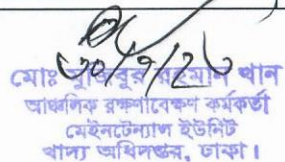 ৩০/৭/২৬
মোঃ মুজিবুর রহমান খান
আঞ্চলিক রক্ষণাবেক্ষণ কর্মকর্তা
মেইনটেন্যান্স ইউনিট
খাদ্য অধিদপ্তর, ঢাকা।